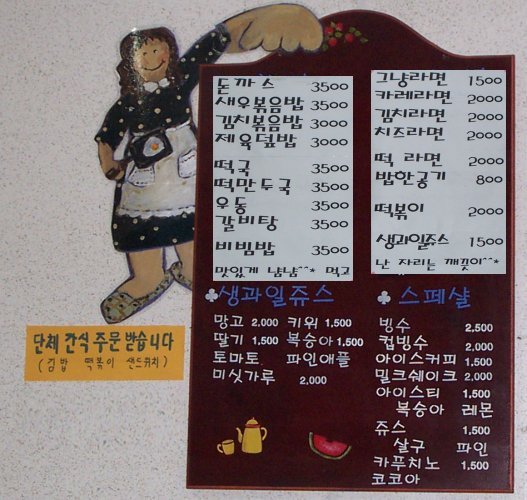 돈까스 3500
새우볶음밥 3500
김치볶음밥 3000
제육덮밥 3000
떡국 3500
떡만두국 3500
우동 3500
갈비탕 3500
비빔밥 3500
맛있게 냠냠^^* 먹고
그냥라면 1500
카레라면 2000
김치라면 2000
치즈라면 2000
떡 라면 2000
밥한공기 800
떡볶이 2000
생과일쥬스 1500
난 자리는 깨끗이^^*
♣생과일쥬스
망고 2,000 키위 1,500
딸기 1,500 복숭아 1,500
토마토 파인애플
미싯가루 2,000
♣스페샬
빙수 2,500
컵빙수 2,000
아이스커피 1,500
밀크쉐이크 2,000
아이스티 1,500
복숭아 레몬
쥬스 1,500
살구 파인
카푸치노 1,500
코코아
단체 간식 주문 받습니다
(김밥 떡볶이 샌드위치)